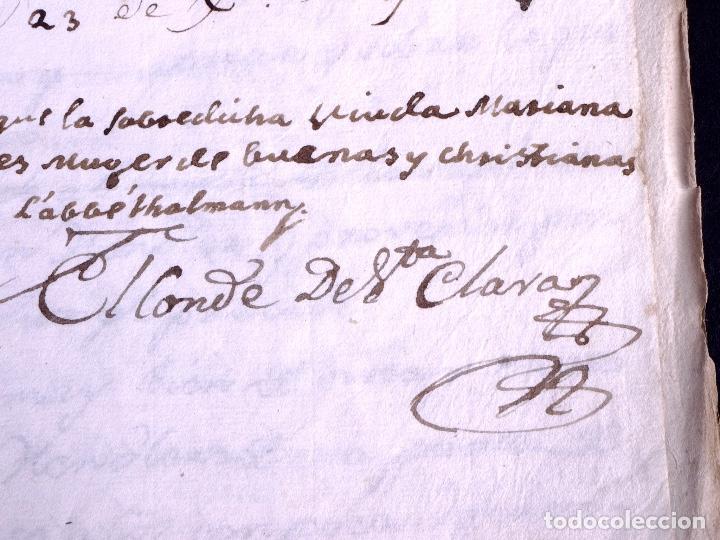 23 de
que la sobredicha Viuda Mariana
es Muger de buenas y christianas
L'abbé thalmann.
El Conde De S.ta Clara
todocoleccion
todocoleccion.net